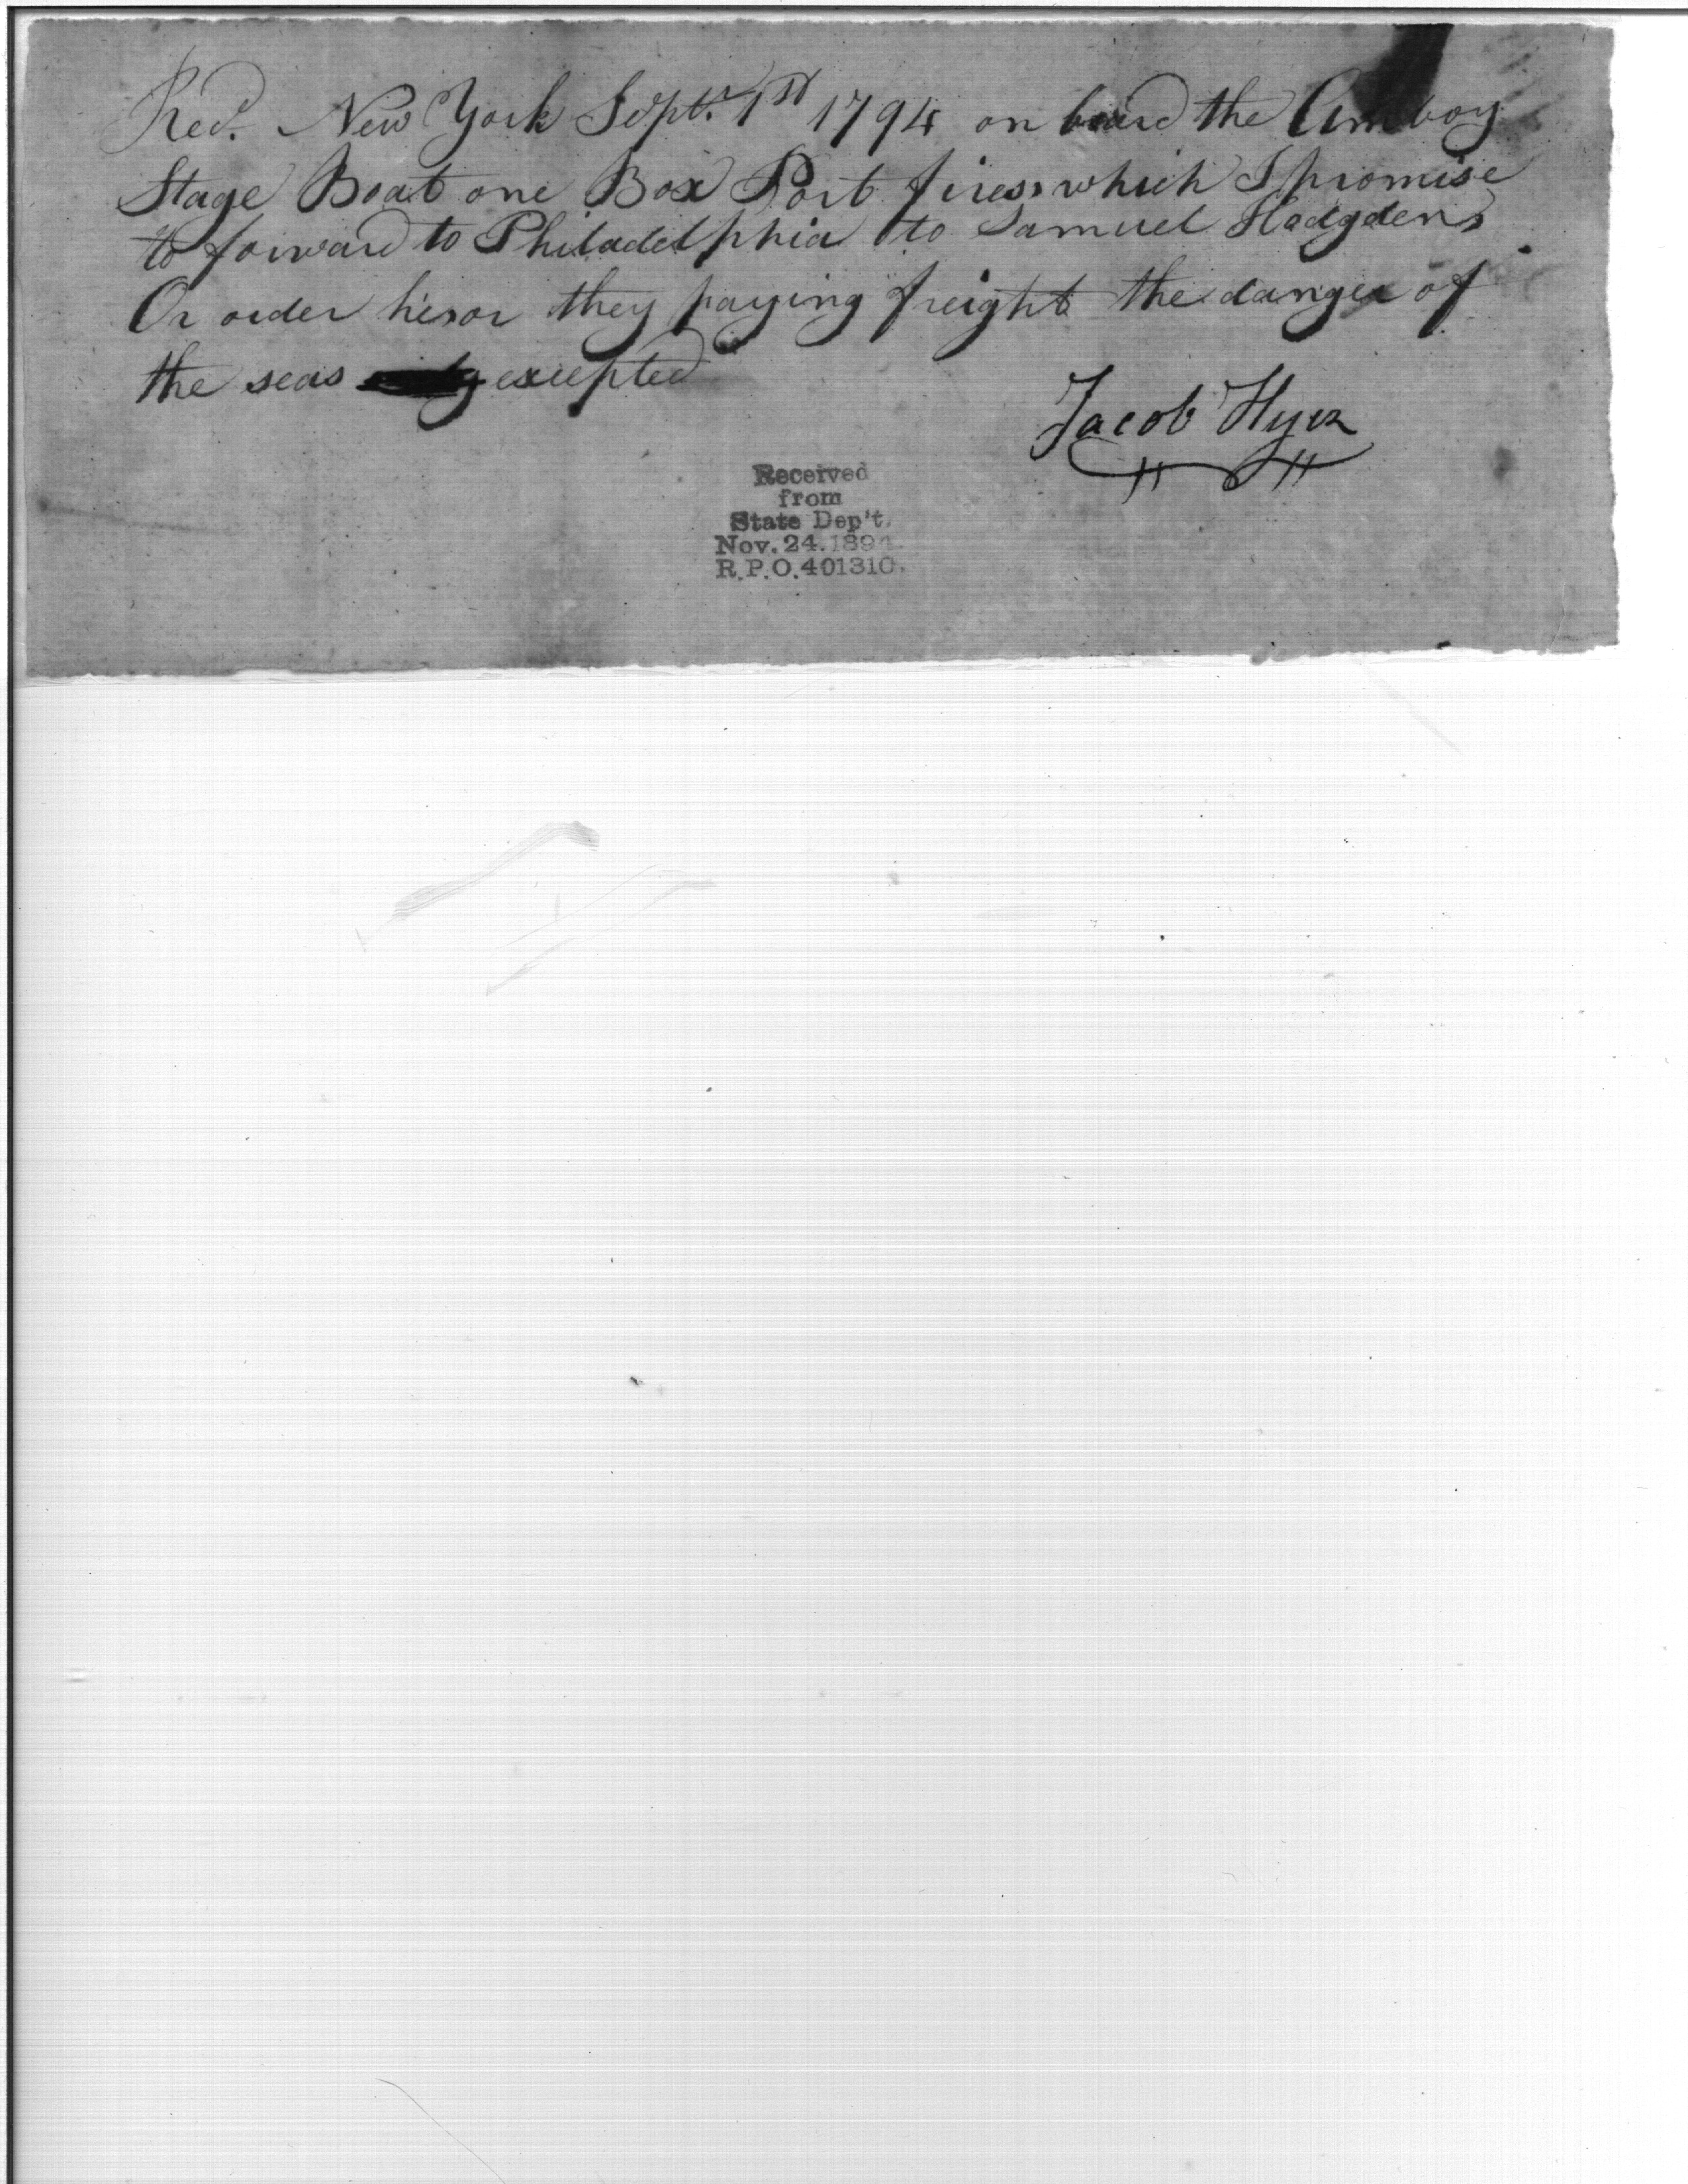 Recd. New York Septr. 1st 1794 on board the Amboy
Stage Boat one Box Port fires which I promise
to forward to Philadelphia to Samuel Hodgdens
Or order he or they paying freight the danger of
the seas excepted
Jacob Hyer
Received
from
State Dep't.
Nov. 24. 1894.
R.P.O. 401310.